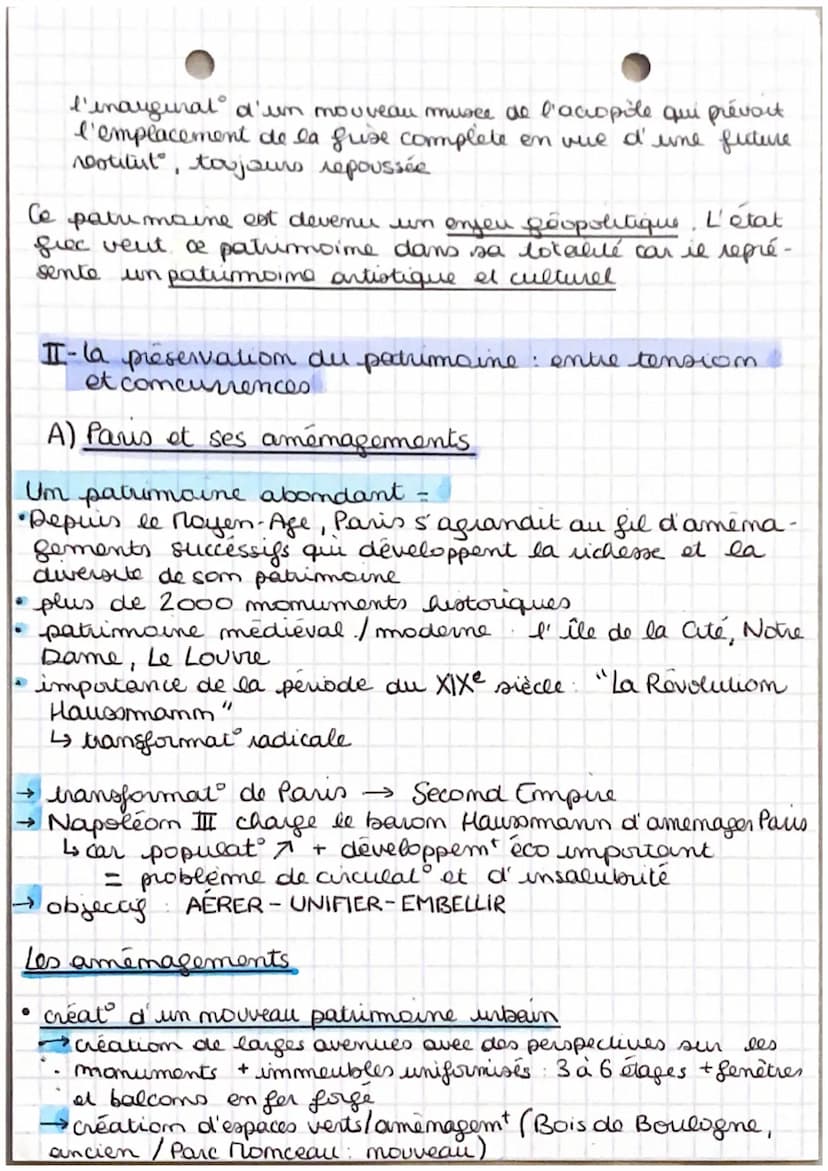 l'inaugurat° d'un nouveau musée de l'acropôle qui prévoit
l'emplacement de la frise complète en vue d'une future
restitut°, toujours repoussée
Ce patrimoine est devenu un enjeu géopolitique. L'état
grec veut ce patrimoine dans sa totalité car il repré-
sente un patrimoine artistique et culturel
II-la préservation du patrimoine : entre tension
et concurrences
A) Paris et ses aménagements
Un patrimoine abondant =
•Depuis le Moyen-Age, Paris s'agrandit au fil d'aména-
gements succéssifs qui développent la richesse et la
diversité de son patrimoine
• plus de 2000 monuments historiques
• patrimoine médiéval / moderne : l'île de la Cité, Notre
Dame, Le Louvre
• importance de la période du XIXe siècle : "La Révolution
Haussmann"
↳ transformat° radicale
→ transformat° de Paris → Second Empire
→ Napoléon III charge le baron Haussmann d'amenager Paris
↳ car populat° ↗ + développemt éco important
= problème de circulat° et d'insalubrité
→ objectif : AÉRER - UNIFIER - EMBELLIR
Les aménagements
• créat° d'un nouveau patrimoine urbain
→ création de larges avenues avec des perspectives sur les
monuments + immeubles uniformisés : 3 à 6 étages + fenêtres
et balcons en fer forgé
→ création d'espaces verts/aménagemt (Bois de Boulogne,
ancien / Parc Monceau : nouveau)